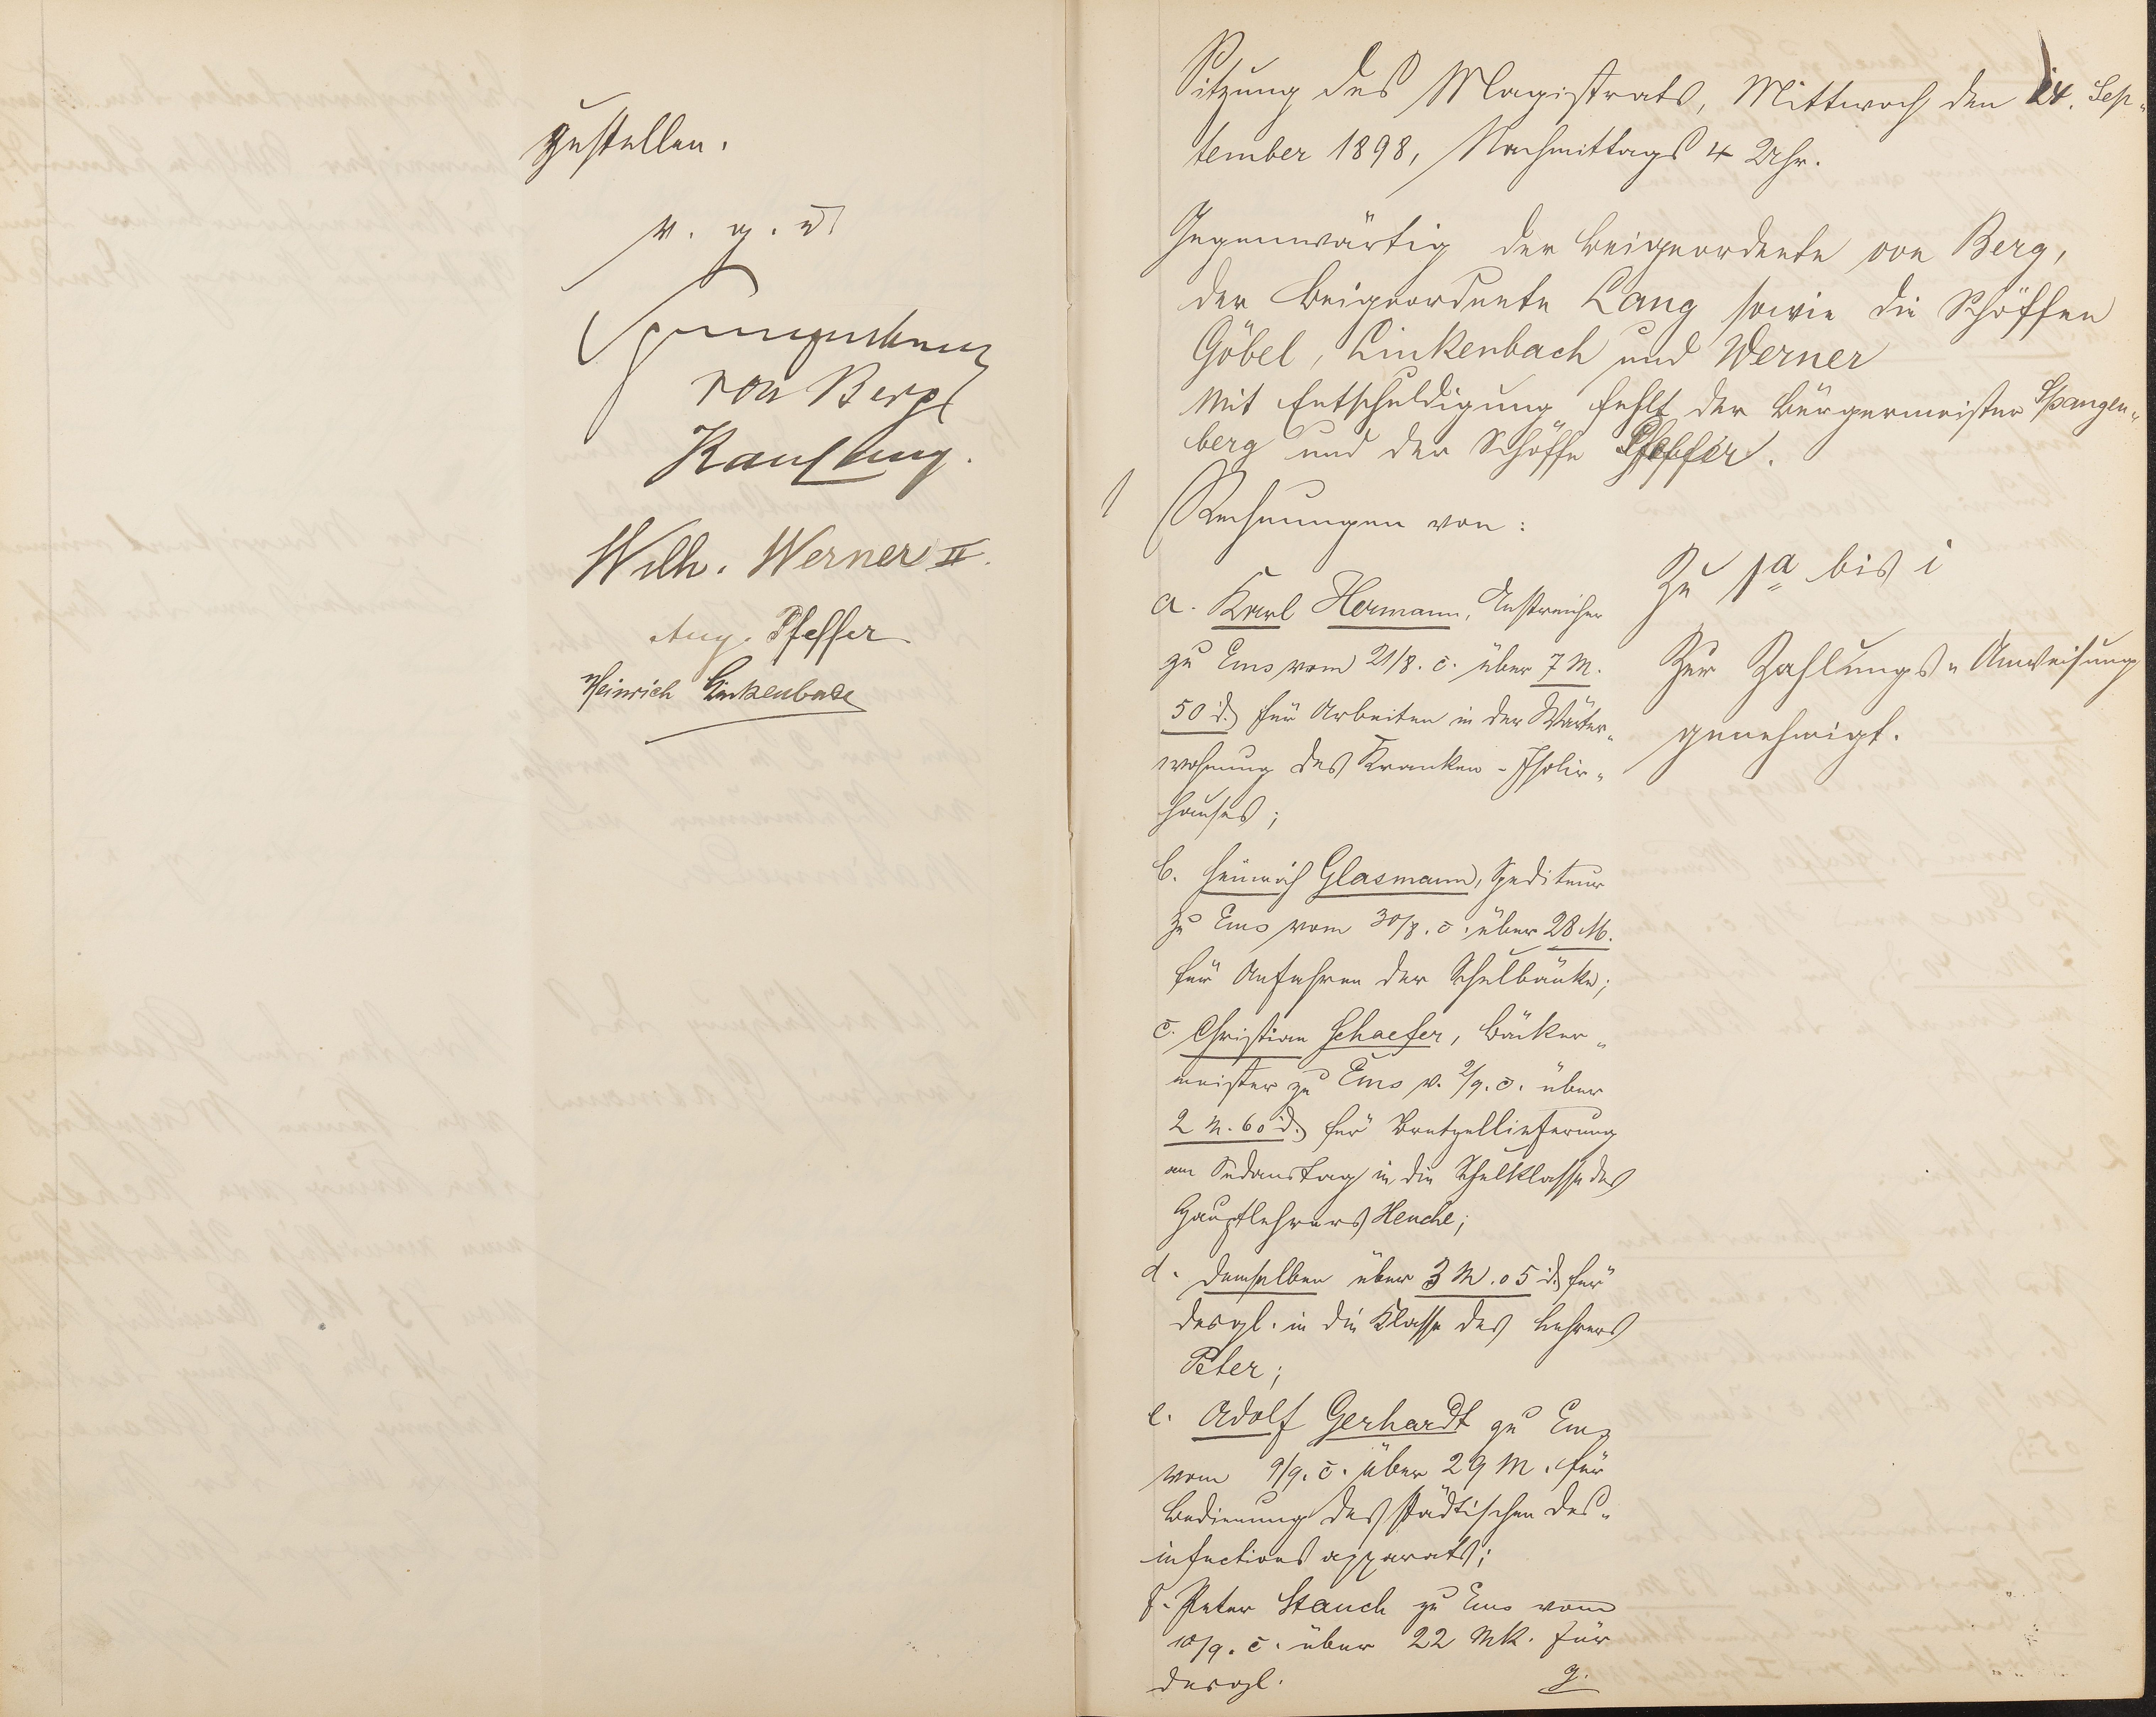 zustellen.
v. g. u.
Spangenberg
von Berg
Karl Lang.
Wilh. Werner II.
Aug. Pfeffer
Heinrich Linkenbach
Sitzung des Magistrats, Mittwoch den 14. Sep-
tember 1898, Nachmittags 4 Uhr.
Gegenwärtig der Beigeordnete von Berg,
der Beigeordnete Lang sowie die Schöffen
Göbel, Linkenbach und Werner
Mit Entschuldigung fehlt der Bürgermeister Spangen-
berg und der Schöffe Pfeffer.
1 Rechnungen von:
a. Karl Hermann, Anstreicher
zu Ems vom 21/8. c. über 7 M.
50 d. für Arbeiten in der Wärter-
wohnung des Kranken-Isolir-
hauses;
b. Heinrich Glasmann, Spediteur
zu Ems vom 30/8. c. über 28 M.
für Anfahren der Schulbänke;
c. Christian Schaefer, Bäcker-
meister zu Ems v. 2/9. c. über
2 M. 60 d. für Bretzellieferung
am Sedanstag in die Schulklasse des
Hauptlehrers Henche;
d. Demselben über 3 M. 05 d. für
desgl. in die Klasse des Lehrers
Peter;
e. Adolf Gerhardt zu Ems
vom 9/9. c. über 29 M. für
Bedienung des städtischen Des-
infectionsapparats;
f. Peter Stauch zu Ems vom
10/9. c. über 22 Mk. für
desgl.
g.
Zu 1a bis i
Zur Zahlungs-Anweisung
genehmigt.